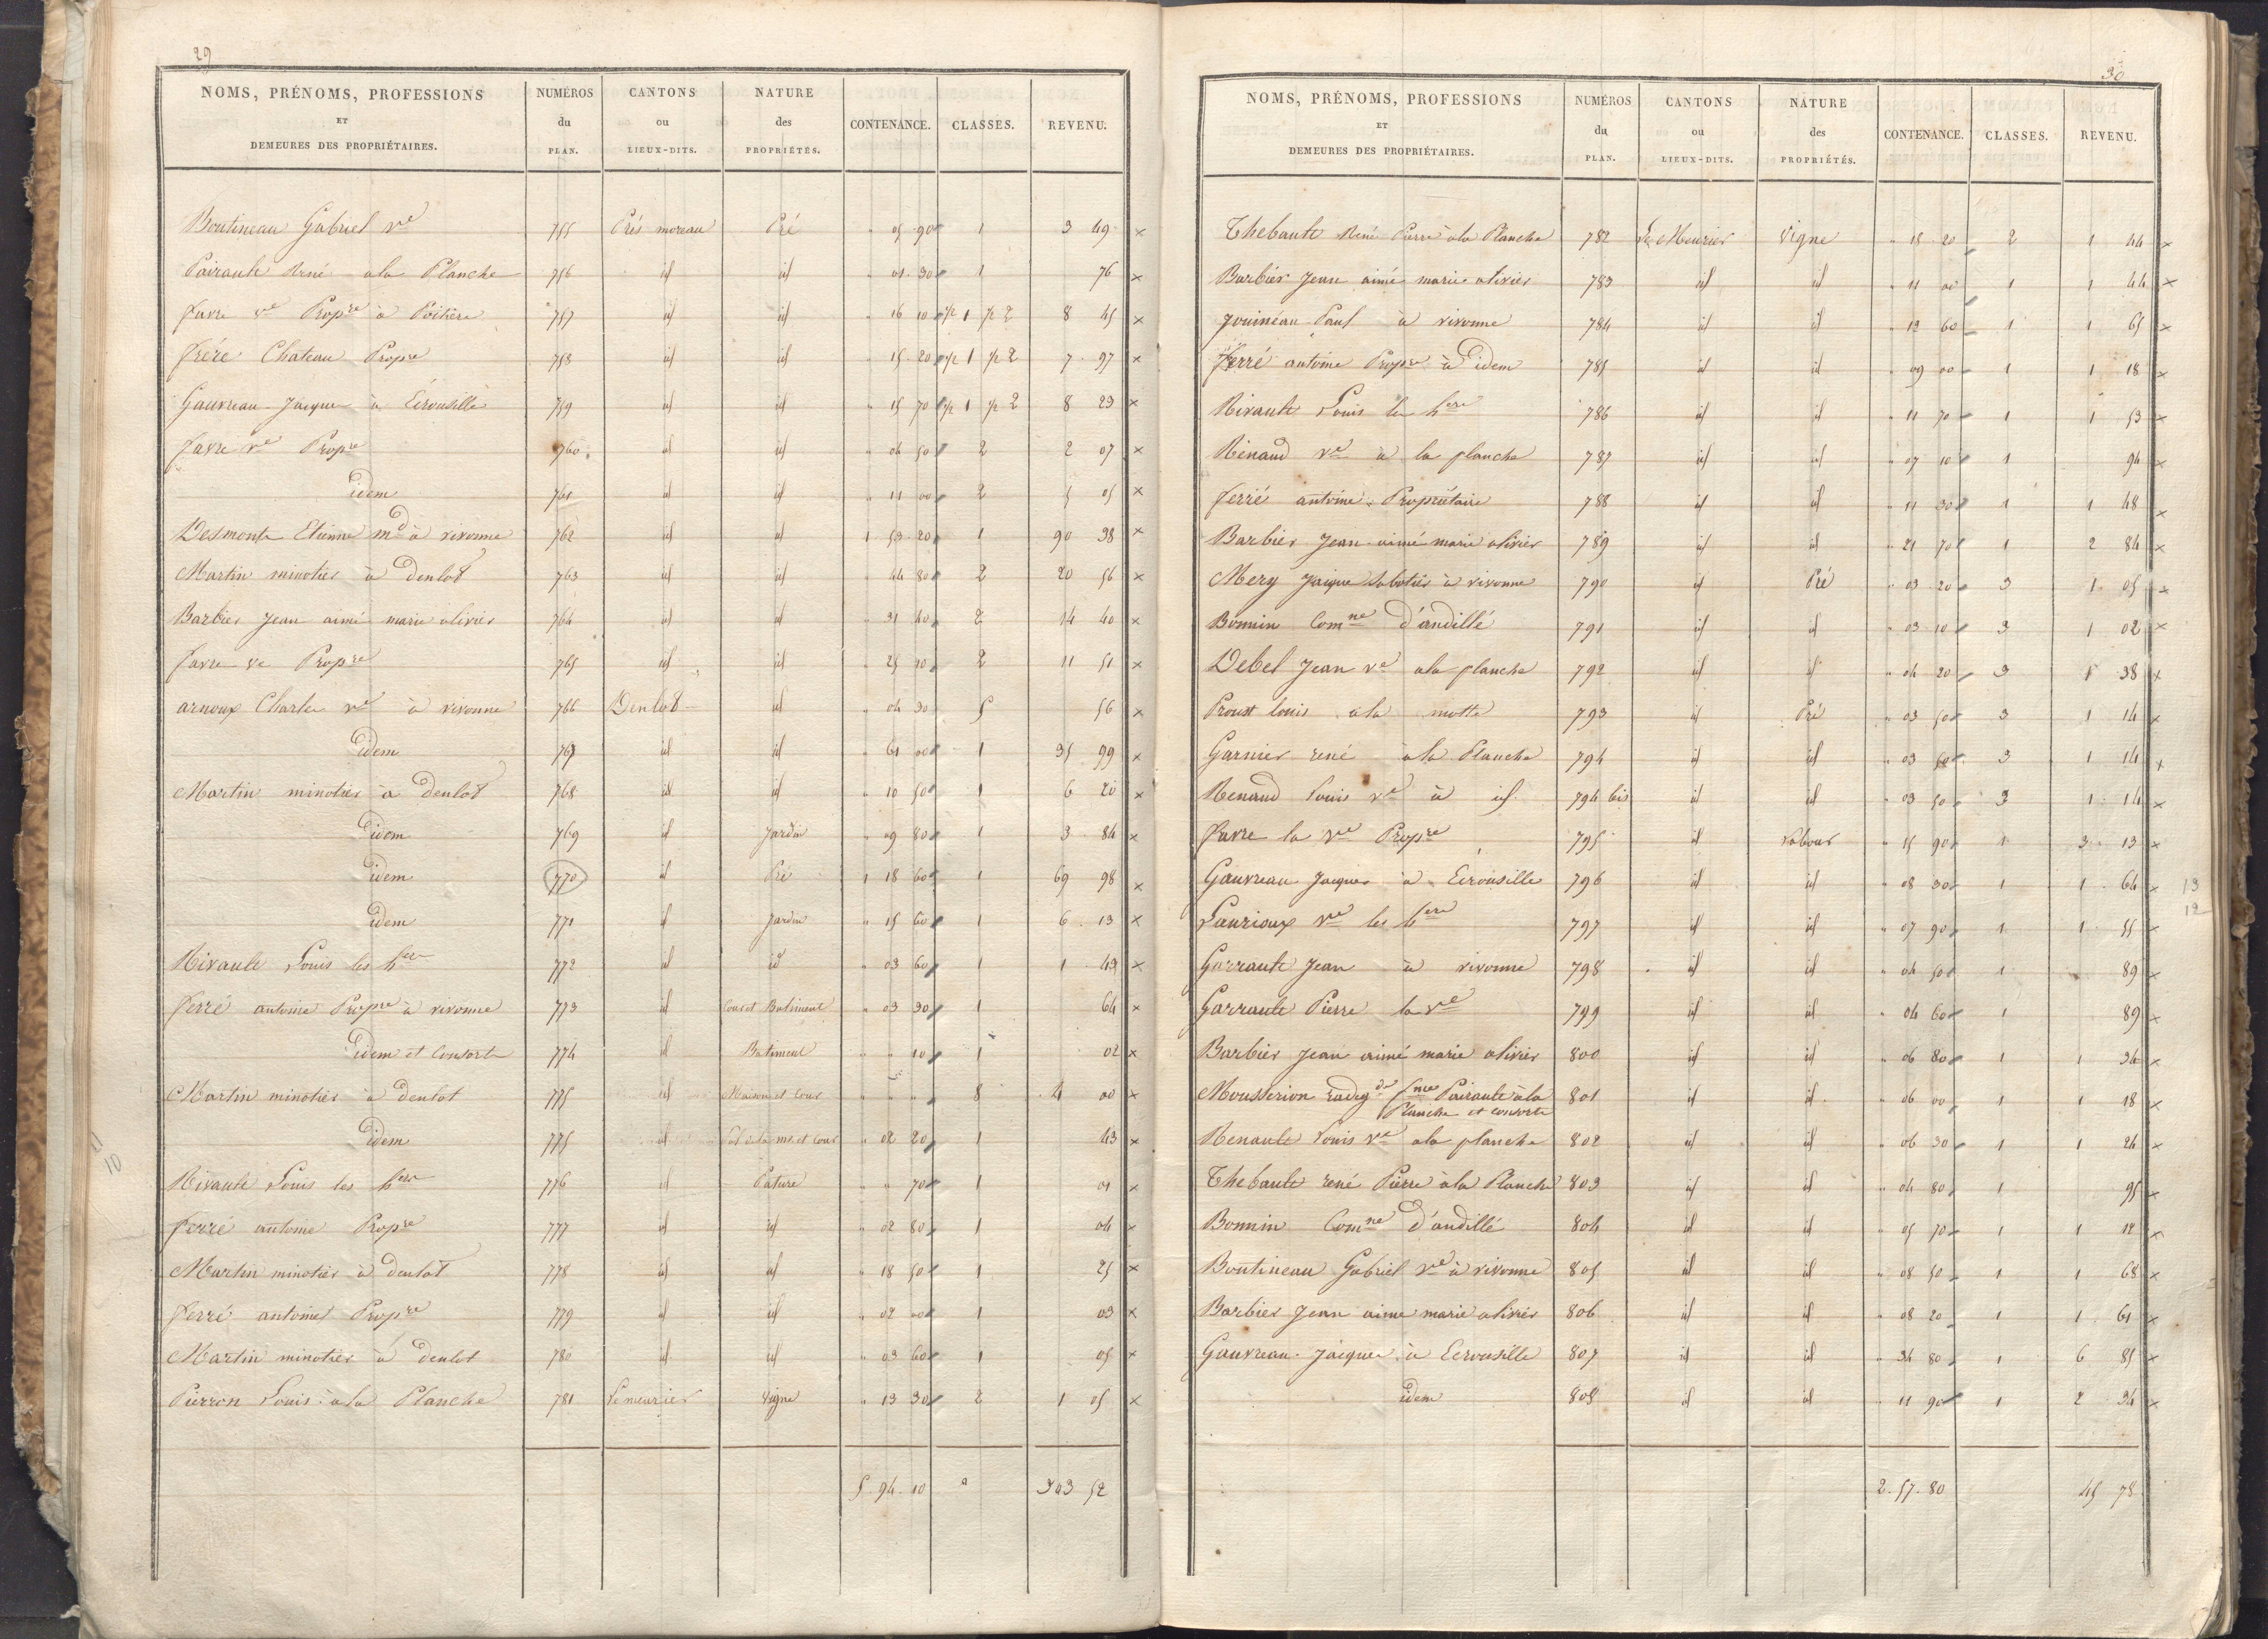 29
NOMS, PRÉNOMS, PROFESSIONS ET DEMEURES DES PROPRIÉTAIRES. NUMÉROS du PLAN. CANTONS ou LIEUX-DITS. NATURE des PROPRIÉTÉS. CONTENANCE. CLASSES. REVENU.
Boutineau Gabriel Ve 755 Prés moreau Pré " 05 90 1 3 49 x
Pairault René à la Planche 756 id id " 01 30 1 76 x
favre ve Propre à Poitiers 757 id id " 16 10 1/2 1 1/2 2 8 45 x
frére Chateau Propre 758 id id " 15 20 1/2 1 1/2 2 7 97 x
Gauvreau Jacques à Ecrousille 759 id id " 15 70 1/2 1 1/2 2 8 23 x
favre ve Propre 760 id id " 06 50 2 2 07 x
idem 761 id id " 11 00 2 5 05 x
Desmonts Etienne md à vivonne 762 id id 1 53 20 1 90 38 x
Martin minotier à Denlot 763 id id " 44 80 2 20 56 x
Barbier Jean aimé marie olivier 764 id id " 31 40 2 14 40 x
favre ve Propre 765 id id " 25 10 2 11 51 x
arnoux Charles ve à vivonne 766 Denlot id " 04 30 5 56 x
idem 767 id id " 61 00 1 35 99 x
Martin minotier à denlot 768 id id " 10 50 1 6 20 x
idem 769 id Jardin " 09 80 1 3 84 x
idem 770 id Pré 1 18 60 1 69 98 x
idem 771 id Jardin " 15 60 1 6 13 x
Rivault Louis les hers 772 id id " 03 60 1 1 43 x
ferré antoine Propre à vivonne 773 id Cour et Batiment " 03 30 1 64 x
idem et Consorts 774 id Batiment " " 10 1 02 x
Martin minotier à denlot 775 id Maison et Cour " " " 8 4 00 x
idem 775 id Sol de la mon et Cour " 02 20 1 43 x
Rivault Louis les hers 776 id Pature " " 70 1 01 x
ferré antoine Propre 777 id id " 02 80 1 04 x
Martin minotier à denlot 778 id id " 18 50 1 25 x
ferré antoine Propre 779 id id " 02 00 1 03 x
Martin minotier à denlot 780 id id " 03 60 1 05 x
Pierron Louis à la Planche 781 Le meurier Vigne " 13 30 2 1 05 x
5 94 10 303 52
11
10
30
NOMS, PRÉNOMS, PROFESSIONS ET DEMEURES DES PROPRIÉTAIRES. NUMÉROS du PLAN. CANTONS ou LIEUX-DITS. NATURE des PROPRIÉTÉS. CONTENANCE. CLASSES. REVENU.
Thebault René Pierre à la Planche 782 Le Meurier Vigne " 18 20 2 1 44 x
Barbier Jean aimé marie olivier 783 id id " 11 00 1 1 44 x
Jouineau Paul à vivonne 784 id id " 12 60 1 1 65 x
ferré antoine Propre à idem 785 id id " 09 00 1 1 18 x
Rivault Louis les hers 786 id id " 11 70 1 1 53 x
Renaud ve à la planche 787 id id " 07 10 1 94 x
ferré antoine Propriétaire 788 id id " 11 30 1 1 48 x
Barbier Jean aimé marie olivier 789 id id " 21 70 1 2 84 x
Mery Jaique Sabotier à vivonne 790 id Pré " 03 20 3 1 05 x
Bonnin Comne d'andillé 791 id id " 03 10 3 1 02 x
Debel Jean ve à la planche 792 id id " 04 20 3 1 38 x
Proust louis à la motte 793 id Pré " 03 50 3 1 14 x
Garnier rené à la Planche 794 id id " 03 50 3 1 14 x
Renaud Louis ve à id 794 bis id id " 03 50 3 1 14 x
favre la Ve Propre 795 id Labour " 15 90 1 3 13 x
Gauvreau Jacques à Ecrousille 796 id id " 08 30 1 1 64 x 13
Laurioux Ve les hers 797 id id " 07 90 1 1 55 x 12
Garrault Jean à vivonne 798 id id " 04 50 1 89 x
Garrault Pierre la ve 799 id id " 04 60 1 89 x
Barbier Jean aimé marie olivier 800 id id " 06 80 1 1 34 x
Mousserion radegde fme Pairault à la 801 id id " 06 00 1 1 18 x
Planche et consorts
Renault Louis ve à la planche 802 id id " 06 30 1 1 24 x
Thebault rené Pierre à la Planche 803 id id " 04 80 1 95 x
Bonnin Comne d'andillé 804 id id " 05 70 1 1 12 x
Boutineau Gabriel Ve à vivonne 805 id id " 08 50 1 1 68 x
Barbier Jean aimé marie olivier 806 id id " 08 20 1 1 61 x
Gauvreau Jaique à Ecrousille 807 id id " 34 80 1 6 85 x
idem 808 id id " 11 90 1 2 34 x
2 57 80 45 78